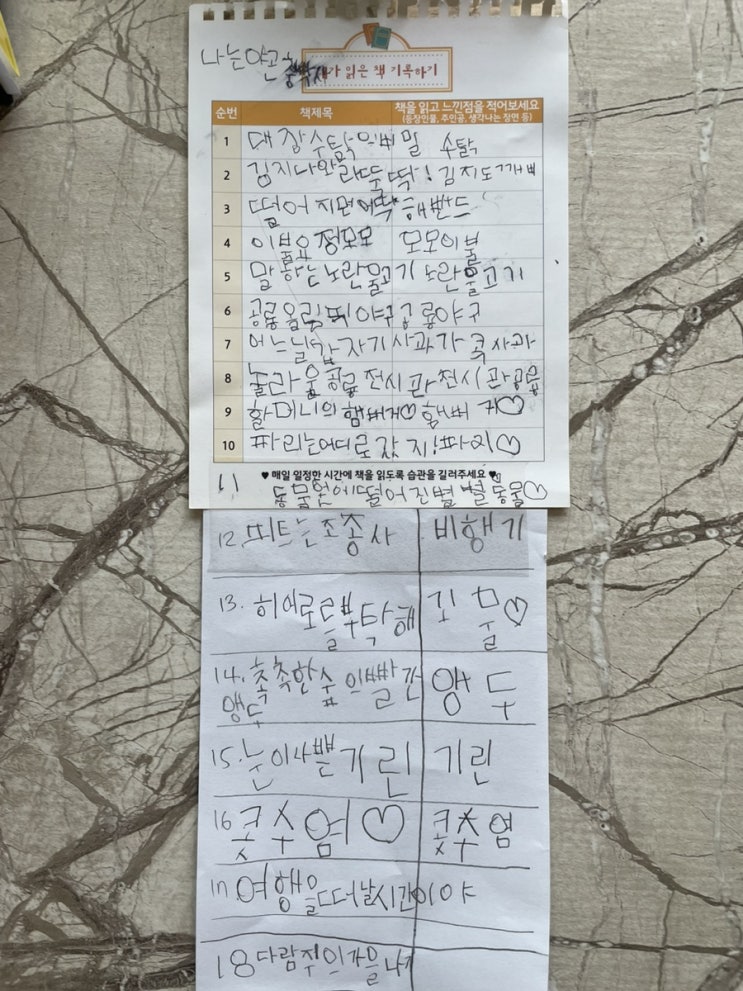 나는야
내가 읽은 책 기록하기
순번 책제목 책을 읽고 느낀점을 적어보세요
(등장인물, 주인공, 생각나는 장면 등)
1 대장수탉의비밀 수탉
2 김치나와라뚝딱! 김치도깨비
3 떨어지면 해밴드
4 이불요정모모 모모이불
5 말하는노란물고기 노란물고기
6 공룡올림픽야구 공룡야구
7 어느날갑자기사과가쿡 사과
8 놀라운공룡전시관 전시관공룡
9 할머니의햄버거♡ 햄버거♡
10 파리는어디로갔지! 파리♡
♥ 매일 일정한 시간에 책을 읽도록 습관을 길러주세요 ♥
11 동물원에떨어진별 별동물♡
12. 조종사 비행기
13. 히어로를부탁해 괴물♡
14. 촉촉한숲의빨간앵두 앵두
15. 눈이나쁜기린 기린
16 콧수염♡ 콧수염
17 여행을떠날시간이야
18 다람쥐의가을나기